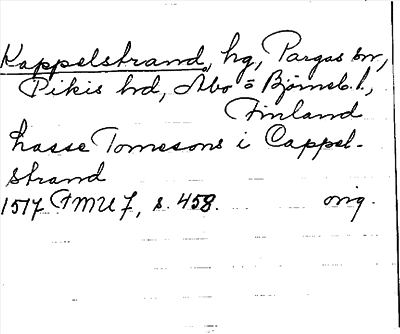 Kappelstrand, hg, Pargas sn,
Pikis hd, Åbo o Björneb. l.,
Finland
Lasse Tomesons i Cappel-
strand
1517 FMU 7, s. 458. orig.